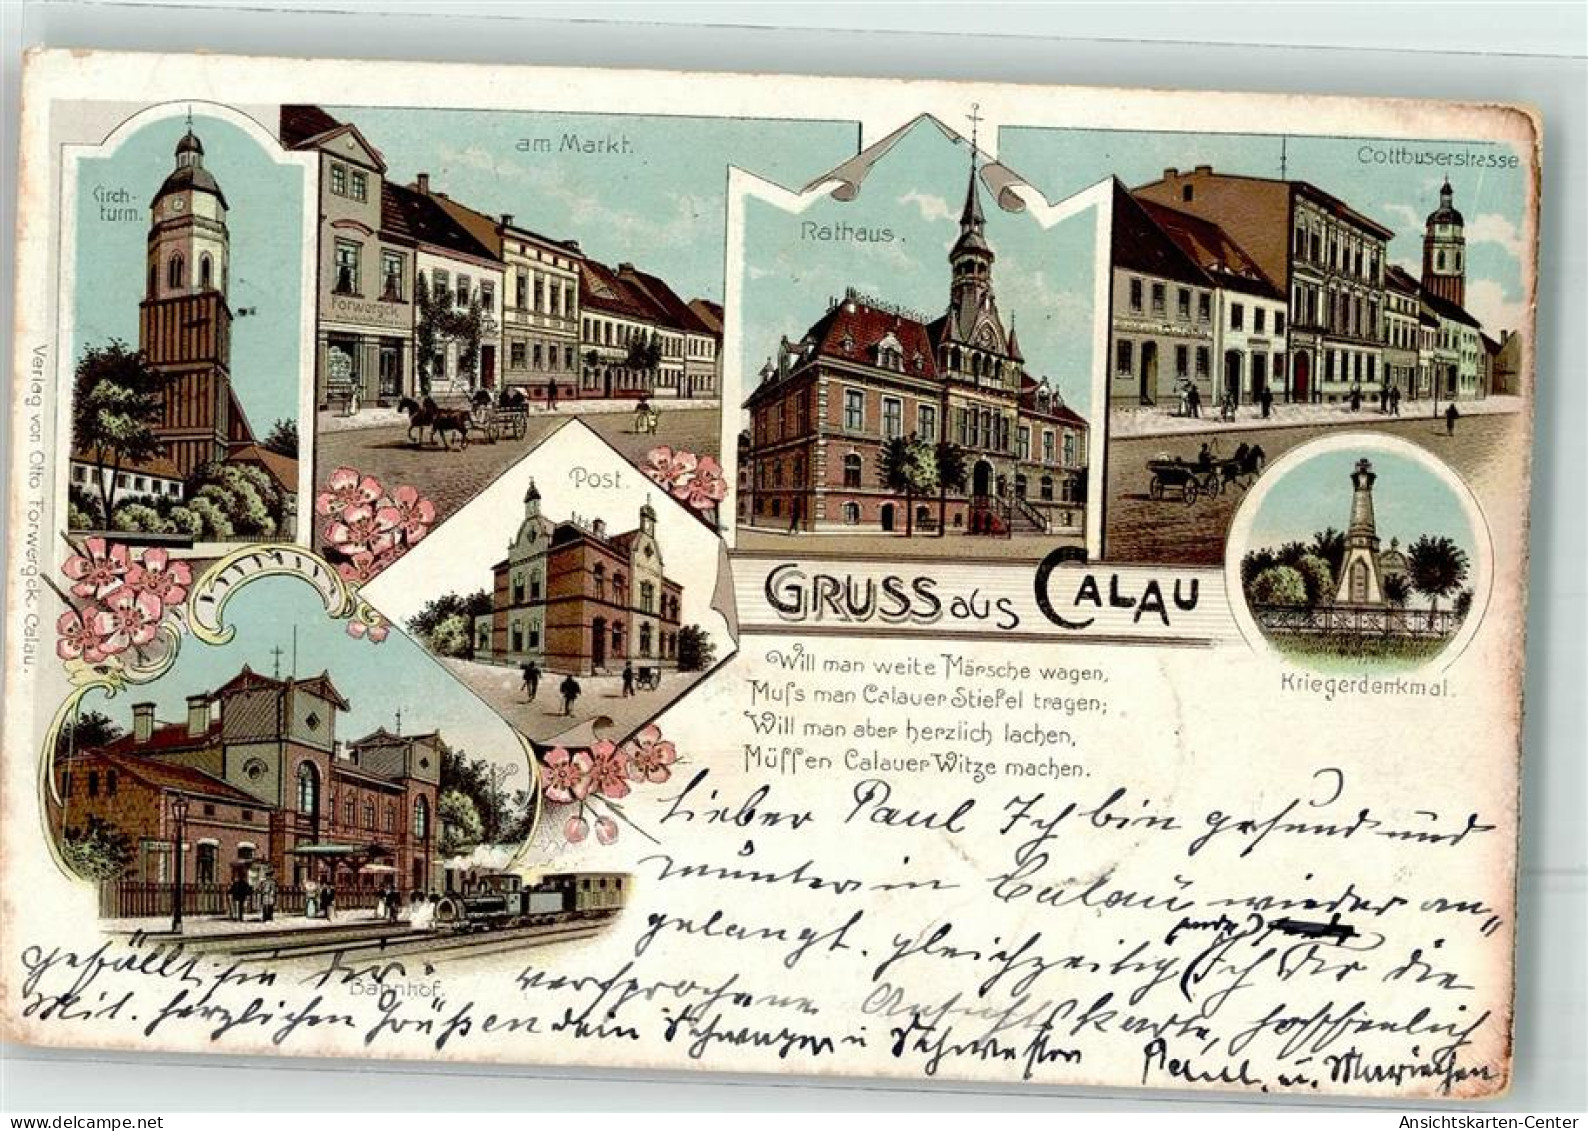 Kirch-
turm.
am Markt.
Torwergck
Rathaus.
Cottbuserstrasse
Post.
GRUSS aus CALAU
Kriegerdenkmal.
Will man weite Märsche wagen,
Muſs man Calauer Stiefel tragen;
Will man aber herzlich lachen,
Müſſen Calauer Witze machen.
Bahnhof.
Verlag von Otto Torwergck, Calau.
Lieber Paul Ich bin gesund und
munter in Calau wieder an„
gelangt. gleichzeitig sende Ich Dir die
versprochene Ansichtskarte, hoffentlich
gefällt sie dir
Mit herzlichen Grüßen dein Schwager u Schwester
Paul u. Mariechen
Ansichtskarten-Center